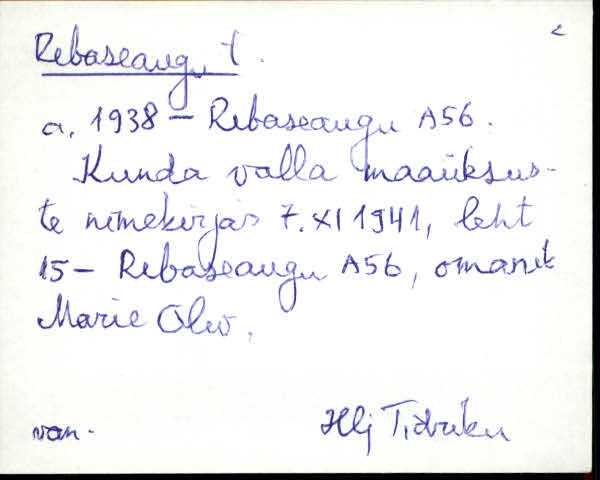 2
Rebaseaugu t.
a. 1938 – Rebaseaugu A56.
Kunda valla maaüksus-
te nimekirjas 7. XI 1941, leht
15 – Rebaseaugu A56, omanik
Marie Olw.
van. Hlj Tidriku